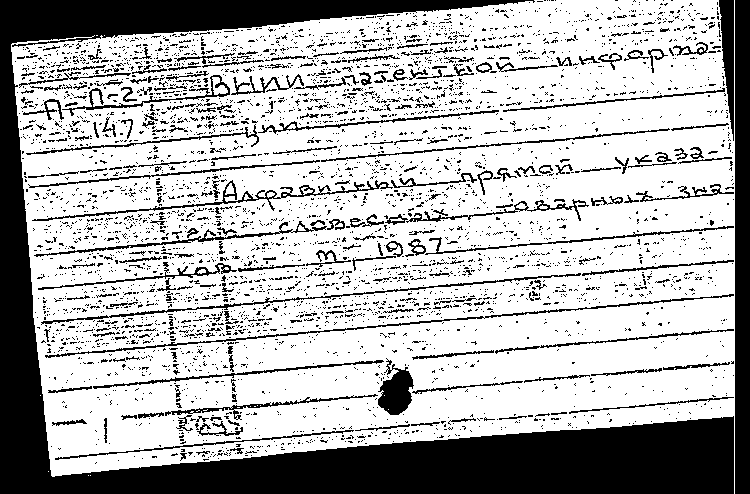 П-П-2 ВНИИ патентной информа-
147 ции
Алфавитный прямой указа-
тель словесных товарных зна-
ков. - м., 1987
1